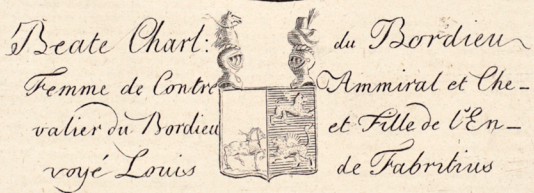 Beate Charl: du Bordieu
Femme de Contre Ammiral et Che-
valier du Bordieu et Fille de l'En-
voyé Louis de Fabritius